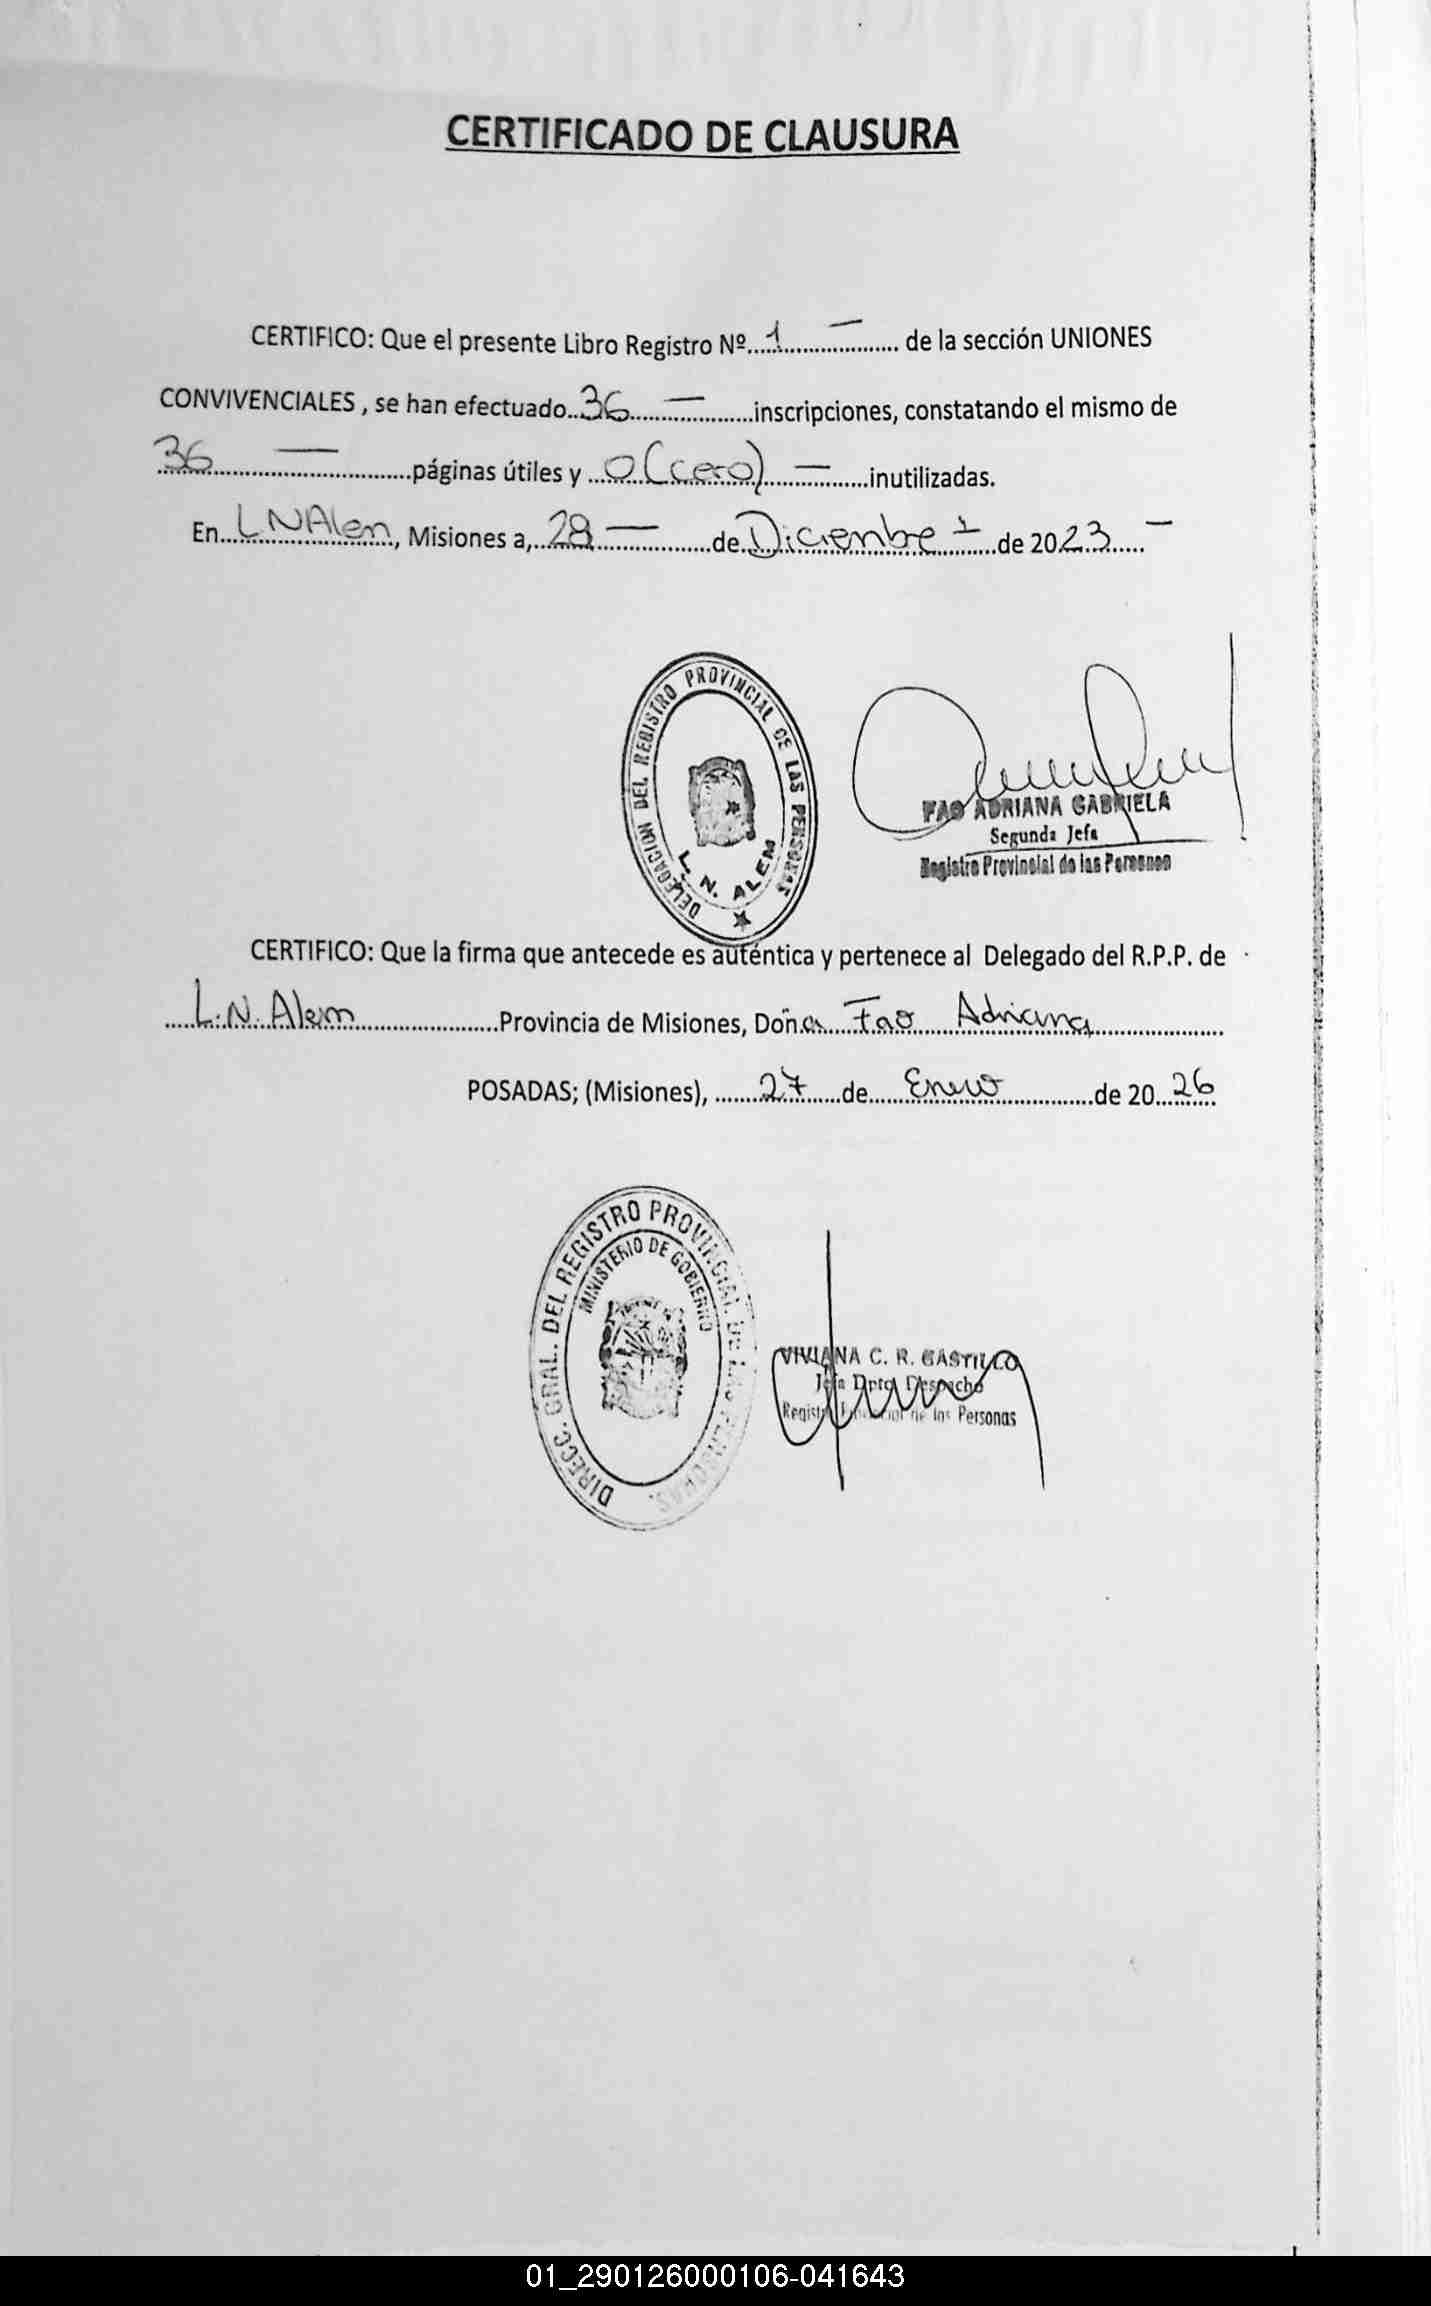 CERTIFICADO DE CLAUSURA
CERTIFICO: Que el presente Libro Registro Nº...1 — ... de la sección UNIONES
CONVIVENCIALES , se han efectuado..36.....—.....inscripciones, constatando el mismo de
36 — ...páginas útiles y ...0 (cero) — ...inutilizadas.
En...L N Alem..., Misiones a,...28 — ...de...Diciembre — ...de 2023... —
DELEGACION DEL REGISTRO PROVINCIAL DE LAS PERSONAS
L. N. ALEM
FAO ADRIANA GABRIELA
Segunda Jefa
Registro Provincial de las Personas
CERTIFICO: Que la firma que antecede es auténtica y pertenece al Delegado del R.P.P. de
...L.N. Alem...Provincia de Misiones, Doña...Fao Adriana...
POSADAS; (Misiones), ...27...de...Enero...de 20...26
DIRECC. GRAL. DEL REGISTRO PROVINCIAL DE LAS PERSONAS.
MINISTERIO DE GOBIERNO
VIVIANA C. R. CASTILLO
Jefa Dpto. Despacho
Registro Provincial de las Personas
01_290126000106-041643